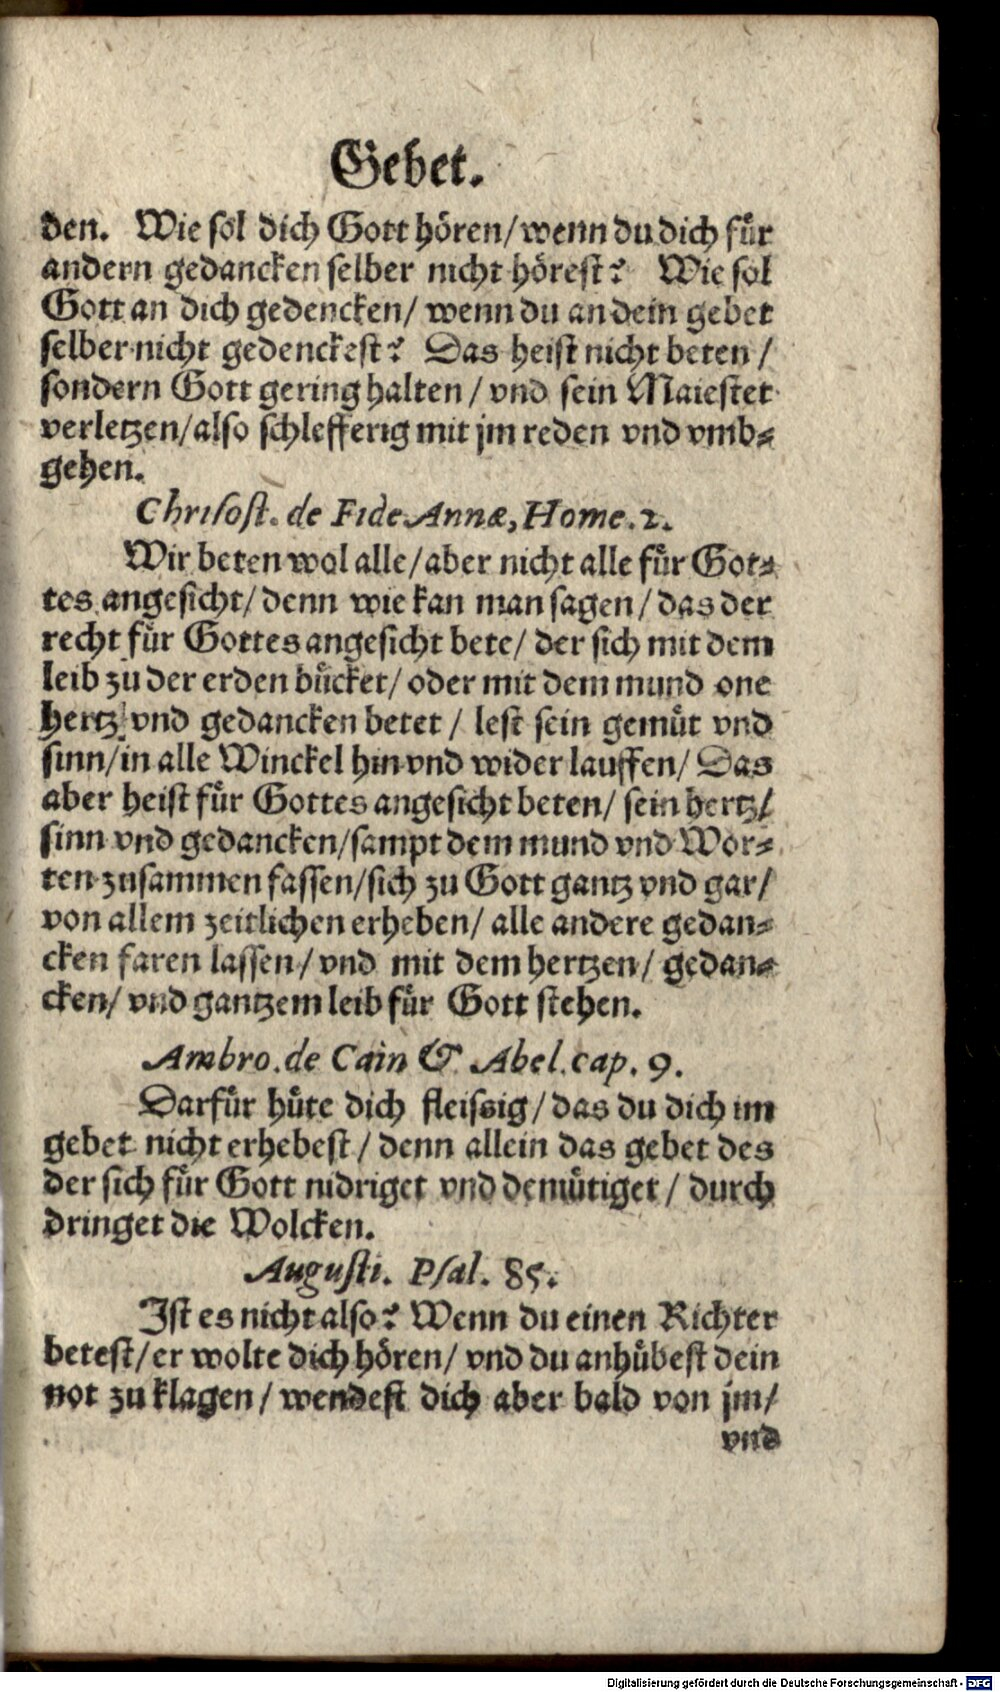 Gebet.
den. Wie sol dich Gott hören/wenn du dich für
andern gedancken selber nicht hörest? Wie sol
Gott an dich gedencken/ wenn du an dein gebet
selber nicht gedenckest? Das heist nicht beten /
sondern Gott gering halten / vnd sein Maiestet
verletzen/also schlefferig mit jm reden vnd vmb-
gehen.
Chrisost. de Fide Annæ, Home. 2.
Wir beten wol alle/aber nicht alle für Got-
tes angesicht/ denn wie kan man sagen/ das der
recht für Gottes angesicht bete/ der sich mit dem
leib zu der erden bücket/ oder mit dem mund one
hertz vnd gedancken betet / lest sein gemüt vnd
sinn/in alle Winckel hin vnd wider lauffen/ Das
aber heist für Gottes angesicht beten/ sein hertz/
sinn vnd gedancken/sampt dem mund vnd Wor-
ten zusammen fassen/sich zu Gott gantz vnd gar/
von allem zeitlichen erheben/ alle andere gedan-
cken faren lassen/ vnd mit dem hertzen/ gedan-
cken/ vnd gantzem leib für Gott stehen.
Ambro. de Cain & Abel. cap. 9.
Darfür hüte dich fleissig/das du dich im
gebet nicht erhebest / denn allein das gebet des
der sich für Gott nidriget vnd demütiget / durch
dringet die Wolcken.
Augusti. Psal. 85.
Ist es nicht also? Wenn du einen Richter
betest/er wolte dich hören/ vnd du anhübest dein
not zu klagen / wendest dich aber bald von jm/
vnd
Digitalisierung gefördert durch die Deutsche Forschungsgemeinschaft - DFG